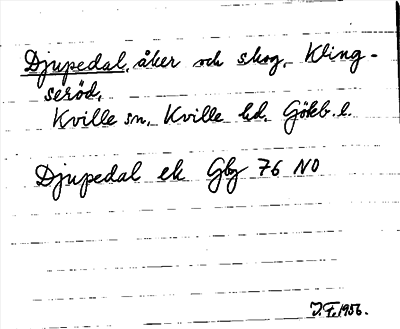 Djupedal, åker och skog, Kling-
seröd,
Kville sn, Kville hd. Göteb. l.
Djupedal ek Gbg 76 NO
J.F. 1956.